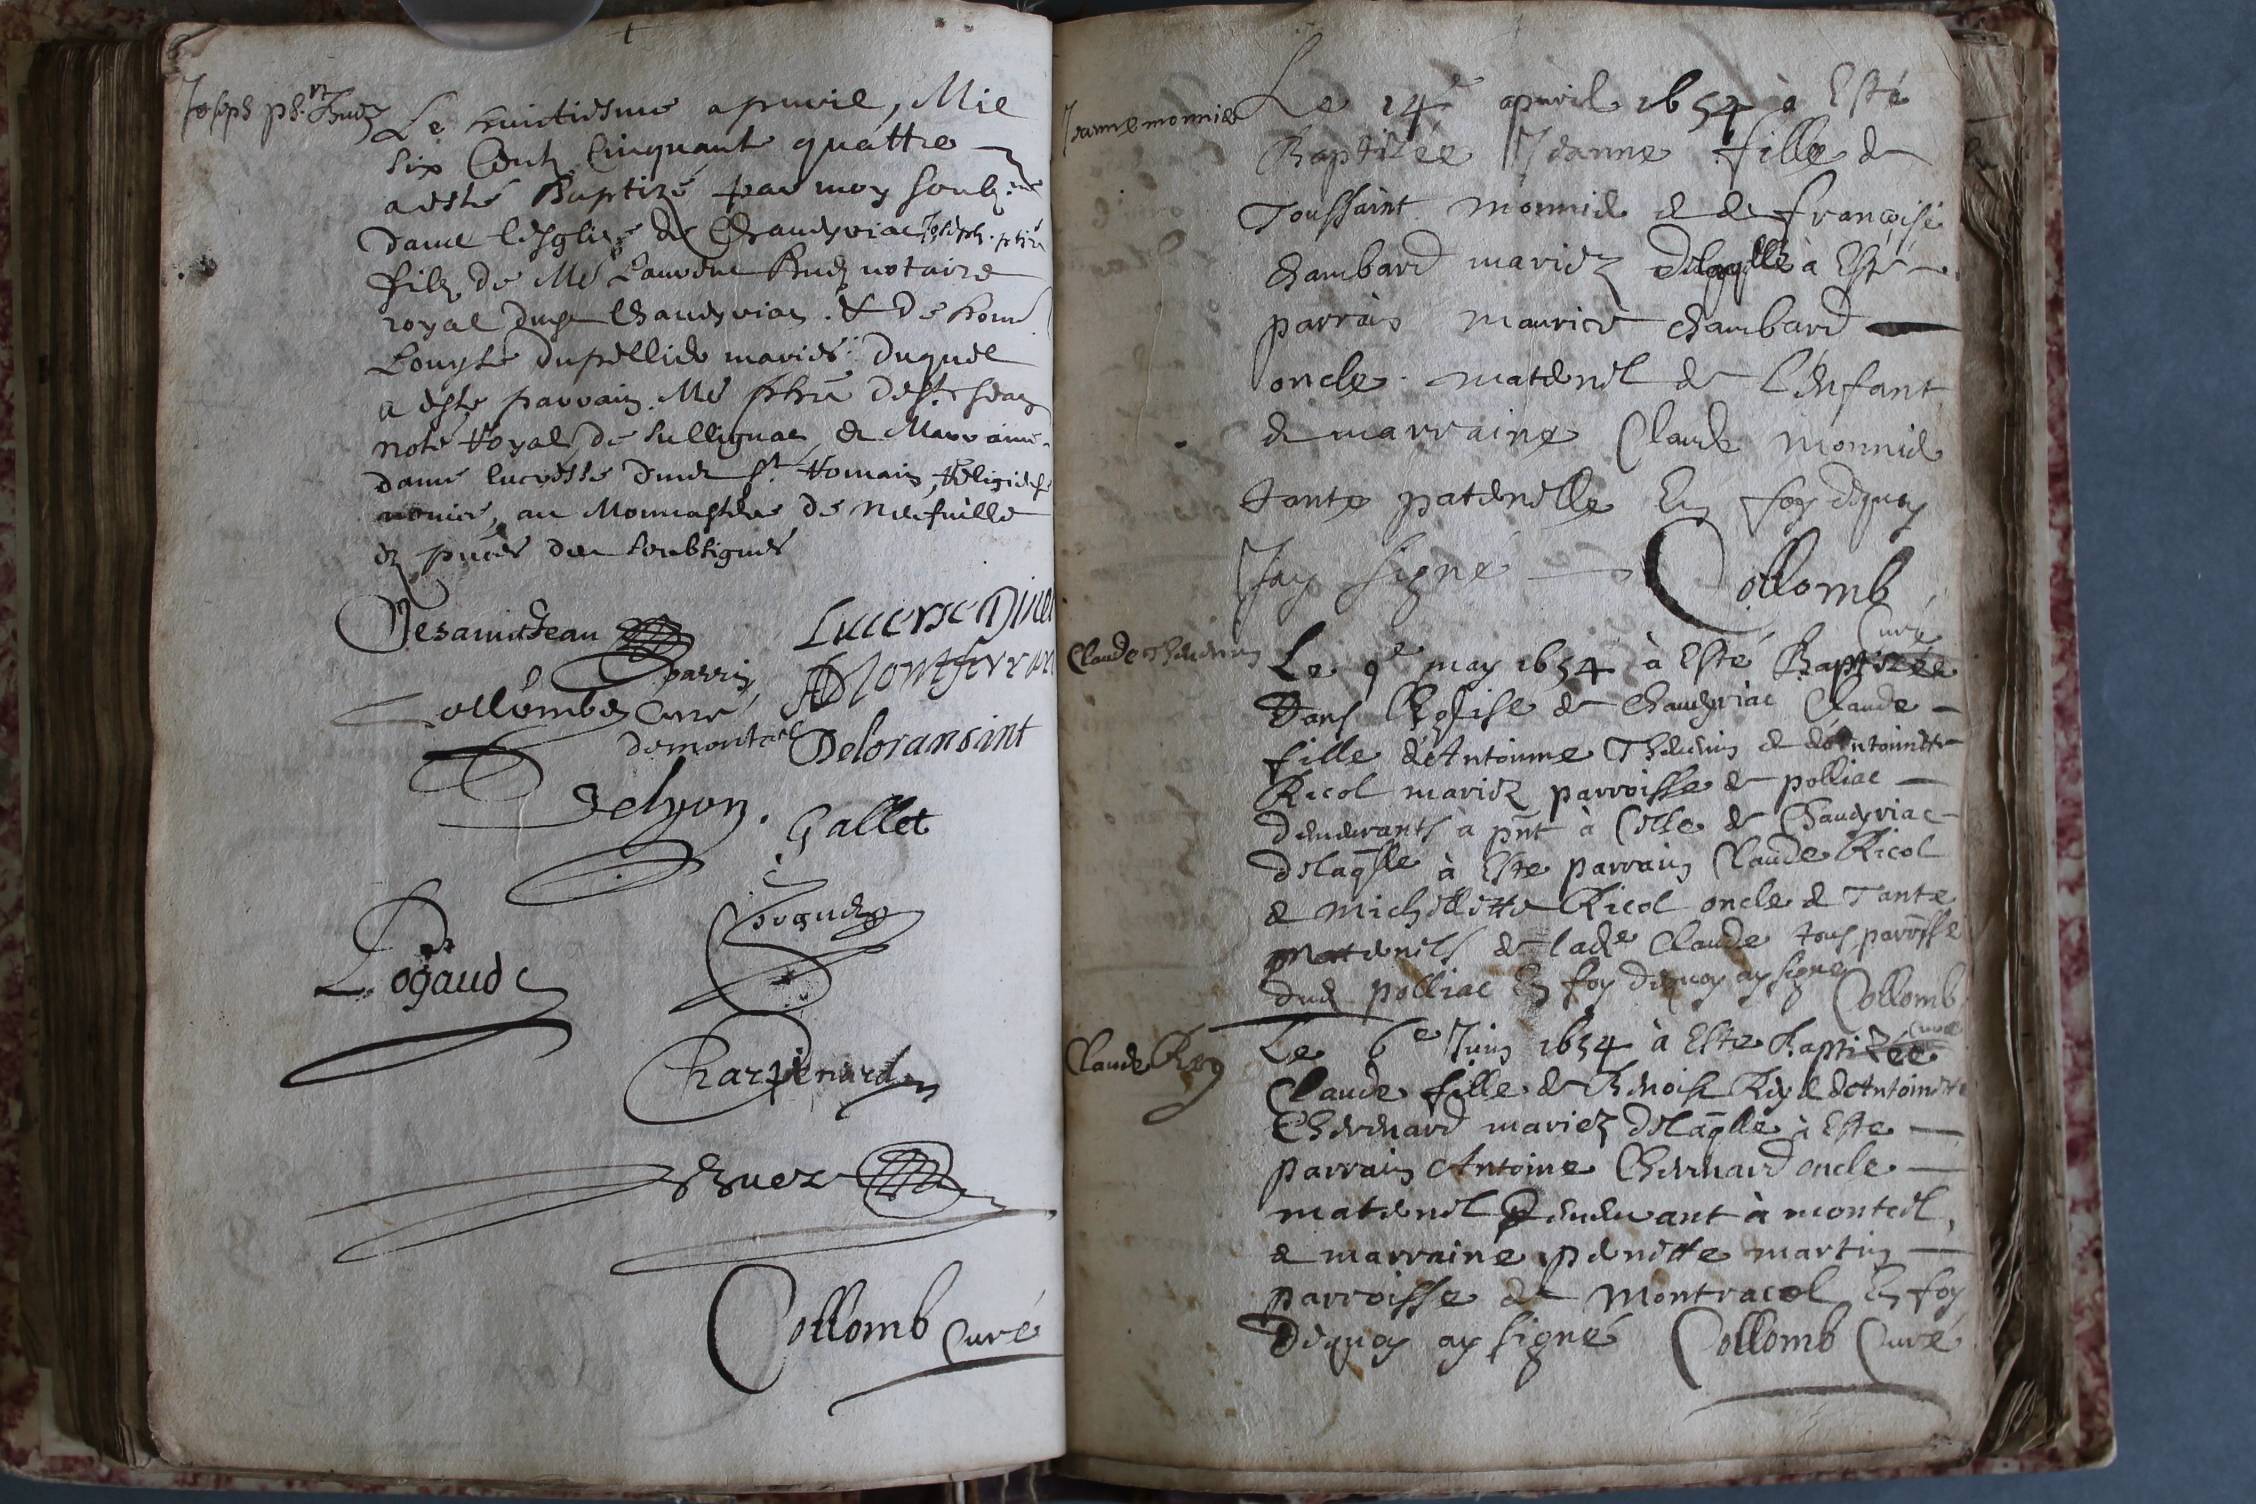 Le huictiesme apuril, Mil
six Centz Cinquant quattre
a esté Baptizé par moy soubz.né
dans l'esglise de Chaudyriac Joseph. phré
filz de Me Laurent Buez notaire
royal dud Chaudyriac. & de hon.
Louyse Dupellier mariés. Duquel
a esté parrain. Me phré De St. Jean
note Royal, de Sullignac, & Marraine
dame lucresse St. Romain, Religieuse
au Monnastere de Neufville
soubsignés
Desainctjean parrin
Lucresse Dinet
Collomb Curé
A Montferrand
demontcel
Deloransint
Delyon.
Gallet
Pogaud
Charpenard
Buez
Collomb Curé
Jeanne monnier
Le 14e apvril 1654 à Esté
Baptisée Jeanne fille de
Toussaint monnier & de françoise
chambard mariez delaqlle à Esté
parrain maurice chambard
oncle maternel de L'enfant
& marraine Claude monnier
tante paternelle En foy dequoy
Jay signé Collomb
Curé
Claude Thevenin
Le 9e may 1654 à Esté Baptizée
Dans l'Eglise de chaudyriac Claude
fille d'Antoinne Thevenin & d'Antoinette
Ricol mariez parroisse de polliac
demeurants à pnt à Celle de Chaudyriac
delaqlle à Esté parrain Claude Ricol
& michelette Ricol oncle & Tante
maternels de lade Claude tous parroisse
dud polliac En foy dequoy ay signé Collomb
Curé
Claude Rey
Le 6e Juin 1654 à Esté Baptizée
Claude fille de Benoist Rey & d'Antoinette
Chevenard mariez delaqlle à Esté
parrain Antoine Chevenard oncle
maternel Demeurant à monteil,
& marraine pernette martin
parroisse de Montracol En foy
Dequoy ay signé Collomb Curé